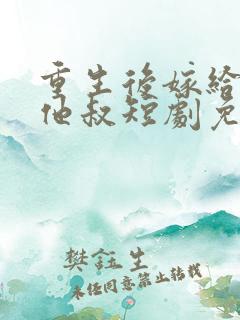 重生後嫁給
他叔短劇免
樊鈺生
未任同意禁止转载